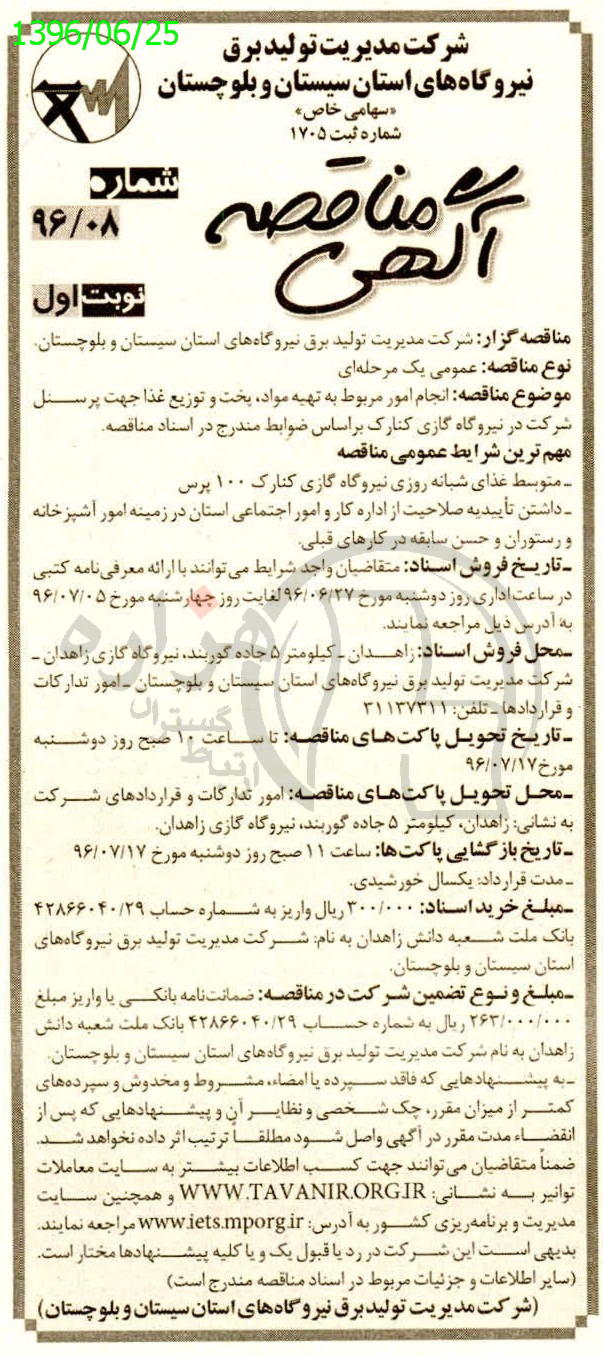 1396/06/25
شرکت مدیریت تولید برق
نیروگاه‌های استان سیستان و بلوچستان
«سهامی خاص»
شماره ثبت ۱۷۰۵
آگهی مناقصه
شماره
۹۶/۰۸
نوبت اول
مناقصه گزار: شرکت مدیریت تولید برق نیروگاه‌های استان سیستان و بلوچستان.
نوع مناقصه: عمومی یک مرحله‌ای
موضوع مناقصه: انجام امور مربوط به تهیه مواد، پخت و توزیع غذا جهت پرسنل
شرکت در نیروگاه گازی کنارک براساس ضوابط مندرج در اسناد مناقصه.
مهم ترین شرایط عمومی مناقصه
ـ متوسط غذای شبانه روزی نیروگاه گازی کنارک ۱۰۰ پرس
ـ داشتن تأییدیه صلاحیت از اداره کار و امور اجتماعی استان در زمینه امور آشپزخانه
و رستوران و حسن سابقه در کارهای قبلی.
ـ تاریخ فروش اسناد: متقاضیان واجد شرایط می‌توانند با ارائه معرفی‌نامه کتبی
در ساعت اداری روز دوشنبه مورخ ۹۶/۰۶/۲۷ لغایت روز چهارشنبه مورخ ۹۶/۰۷/۰۵
به آدرس ذیل مراجعه نمایند.
ـ محل فروش اسناد: زاهدان ـ کیلومتر ۵ جاده گوربند، نیروگاه گازی زاهدان ـ
شرکت مدیریت تولید برق نیروگاه‌های استان سیستان و بلوچستان ـ امور تدارکات
و قراردادها ـ تلفن: ۳۱۱۳۷۳۱۱
ـ تاریخ تحویل پاکت‌های مناقصه: تا ساعت ۱۰ صبح روز دوشنبه
مورخ ۹۶/۰۷/۱۷
ـ محل تحویل پاکت‌های مناقصه: امور تدارکات و قراردادهای شرکت
به نشانی: زاهدان، کیلومتر ۵ جاده گوربند، نیروگاه گازی زاهدان.
ـ تاریخ بازگشایی پاکت‌ها: ساعت ۱۱ صبح روز دوشنبه مورخ ۹۶/۰۷/۱۷
ـ مدت قرارداد: یکسال خورشیدی.
ـ مبلغ خرید اسناد: ۳۰۰/۰۰۰ ریال واریز به شماره حساب ۴۲۸۶۶۰۴۰/۲۹
بانک ملت شعبه دانش زاهدان به نام: شرکت مدیریت تولید برق نیروگاه‌های
استان سیستان و بلوچستان.
ـ مبلغ و نوع تضمین شرکت در مناقصه: ضمانت‌نامه بانکی یا واریز مبلغ
۲۶۳/۰۰۰/۰۰۰ ریال به شماره حساب ۴۲۸۶۶۰۴۰/۲۹ بانک ملت شعبه دانش
زاهدان به نام شرکت مدیریت تولید برق نیروگاه‌های استان سیستان و بلوچستان.
ـ به پیشنهادهایی که فاقد سپرده یا امضاء، مشروط و مخدوش و سپرده‌های
کمتر از میزان مقرر، چک شخصی و نظایر آن و پیشنهادهایی که پس از
انقضاء مدت مقرر در آگهی واصل شود مطلقاً ترتیب اثر داده نخواهد شد.
ضمناً متقاضیان می‌توانند جهت کسب اطلاعات بیشتر به سایت معاملات
توانیر به نشانی: WWW.TAVANIR.ORG.IR و همچنین سایت
مدیریت و برنامه‌ریزی کشور به آدرس: www.iets.mporg.ir مراجعه نمایند.
بدیهی است این شرکت در رد یا قبول یک و یا کلیه پیشنهادها مختار است.
(سایر اطلاعات و جزئیات مربوط در اسناد مناقصه مندرج است)
(شرکت مدیریت تولید برق نیروگاه‌های استان سیستان و بلوچستان)
هزاره
گستران
ارتباط